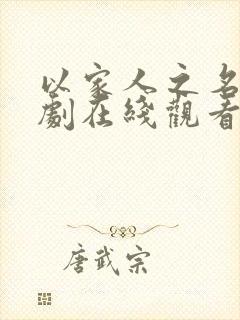 以家人之名
劇在綫觀看
唐武宗